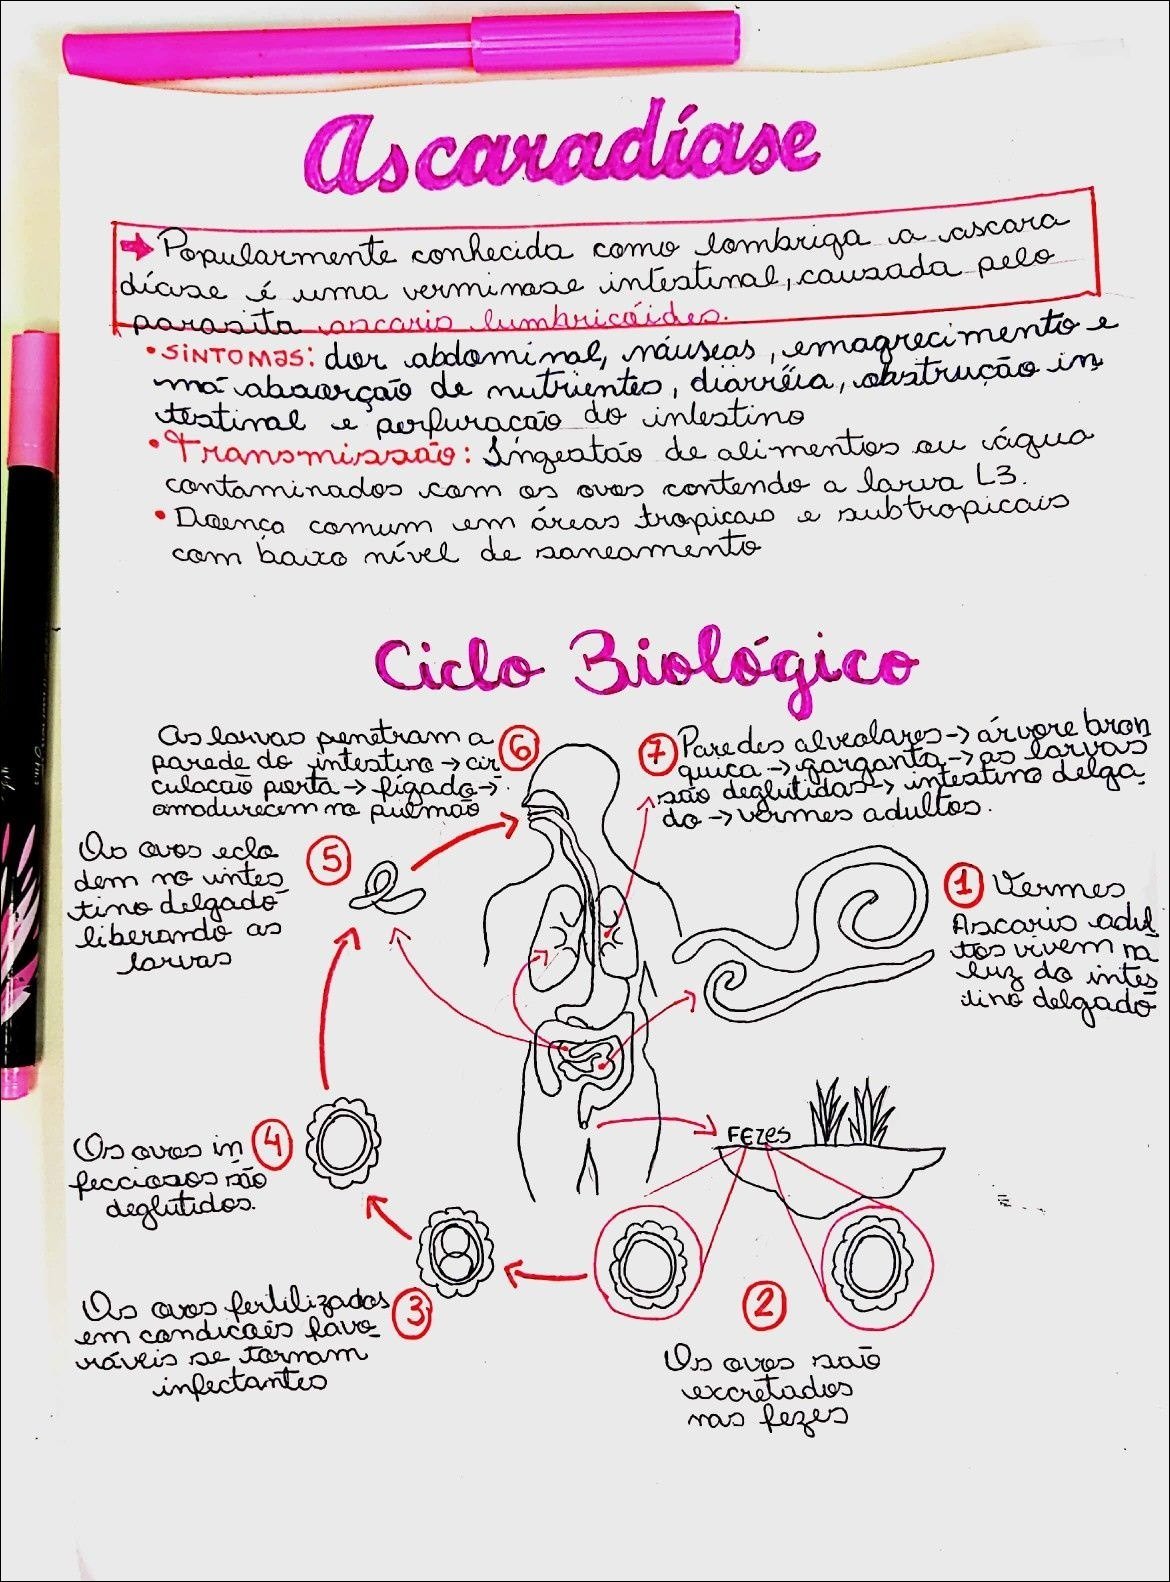 Ascaradíase
→ Popularmente conhecida como lombriga a ascara
díase é uma verminose intestinal, causada pelo
parasita ascaris lumbricóides.
• SINTOMAS: dor abdominal, náuseas, emagrecimento e
má absorção de nutrientes, diarréia, obstrução in
testinal e perfuração do intestino
• Transmissão: Ingestão de alimentos ou água
contaminados com os ovos contendo a larva L3.
• Doença comum em áreas tropicais e subtropicais
com baixo nível de saneamento
Ciclo Biológico
As larvas penetram a
parede do intestino → cir
culação porta → fígado →
amadurecem no pulmão
6
7
Paredes alveolares → árvore bron
quica → garganta → as larvas
são deglutidas → intestino delga-
do → vermes adultos.
Os ovos eclo
dem no intes
tino delgado
liberando as
larvas
5
1 Vermes
Ascaris adul
tos vivem na
luz do intes
tino delgado
Os ovos in
fecciosos são
deglutidos.
4
FEZES
Os ovos fertilizados
em condições favo-
ráveis se tornam
infectantes
3
2
Os ovos são
excretados
nas fezes